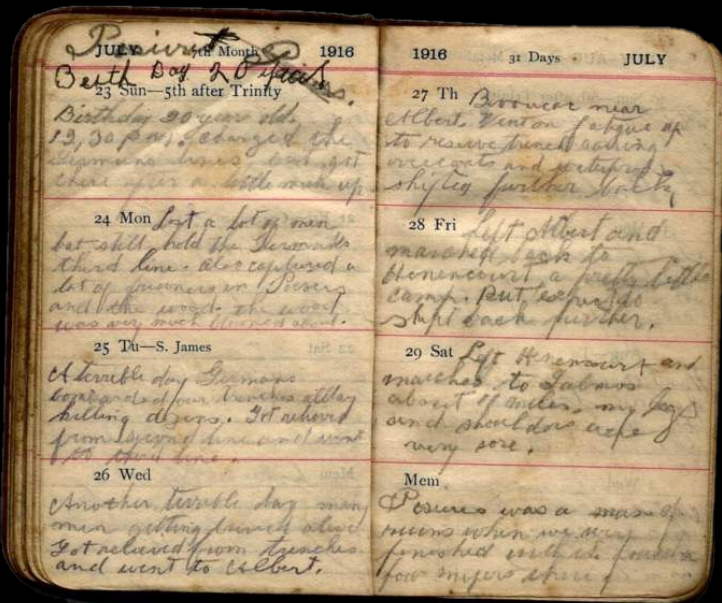 JULY 7th Month 1916
Birth Day 20
23 Sun—5th after Trinity
Birthday 20 year old.
12,30 p.m. charged the
Germans lines and got
there after a little mix up
24 Mon Lost a lot of men
but still hold the Germans
third line. Also captured a
lot of prisoners in
and the wood. the wood
was very much
25 Tu—S. James
A terrible day Germans
bombarded our trenches all day
killing dozens. Got relieved
from second line and went
to third line.
26 Wed
Another terrible day many
men getting buried alive
Got relieved from trenches
and went to Albert.
1916 31 Days JULY
27 Th Bivouac near
Albert. Went on fatigue up
to reserve trench
overcoats and
shifted further back
28 Fri Left Albert and
marched back to
Henencourt a pretty little
camp. But, expect to
shift back further.
29 Sat Left Henencourt and
marched to
about miles, my legs
and shoulders were
very sore.
Mem
Posieres was a mass of
ruins when we
finished with it. found a
few snipers there